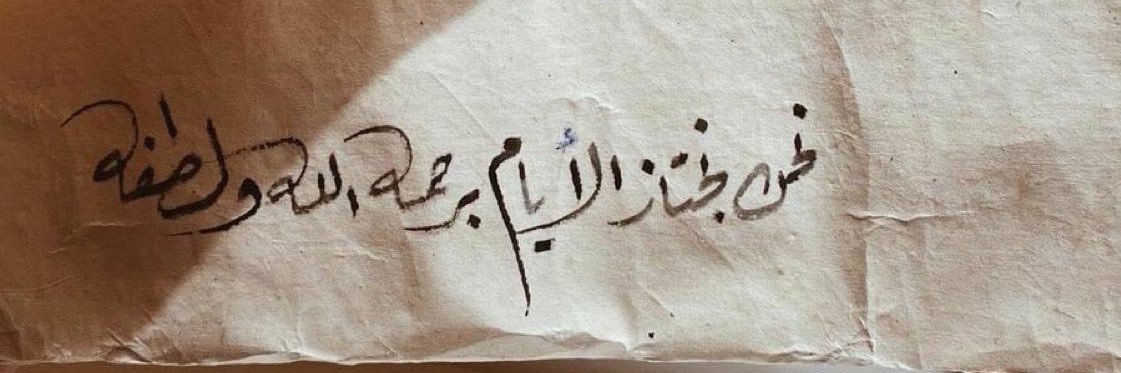 نحن نجتاز الأيام برحمة الله ولطفه